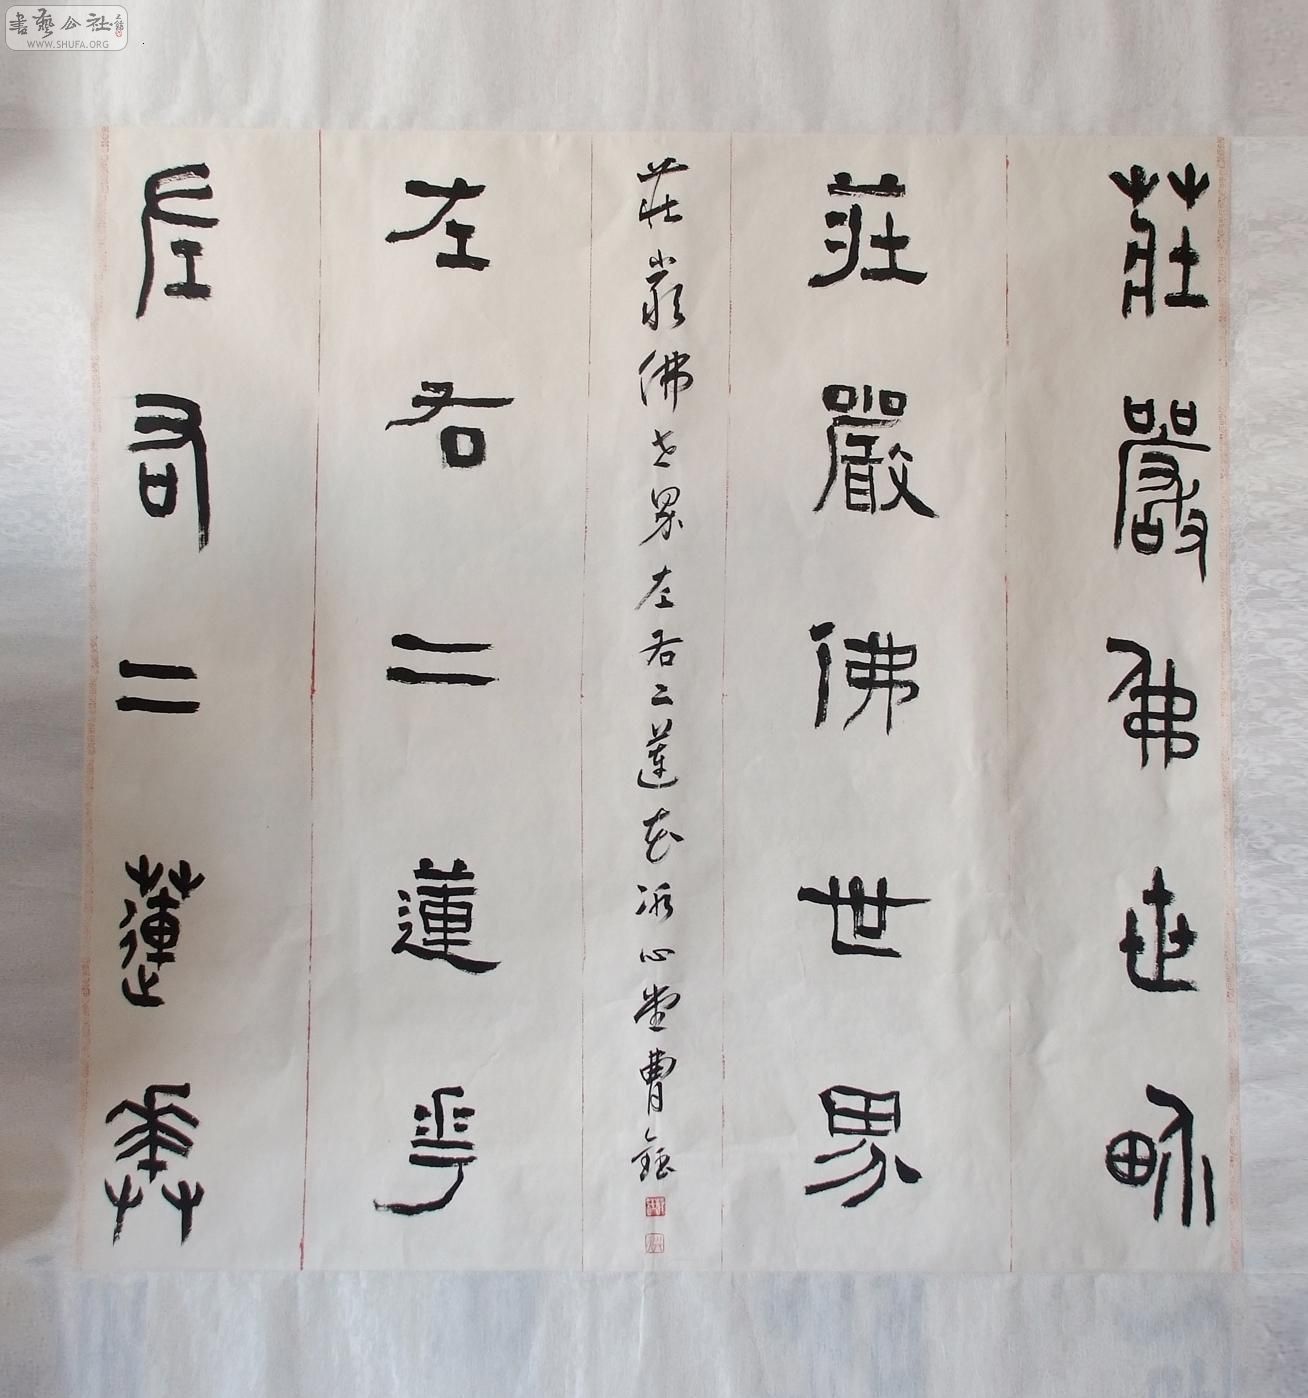 莊嚴佛世界
莊嚴佛世界
莊嚴佛世界左右二蓮花冰心堂曹
左右二蓮華
左右二蓮華
書藝公社
WWW.SHUFA.ORG